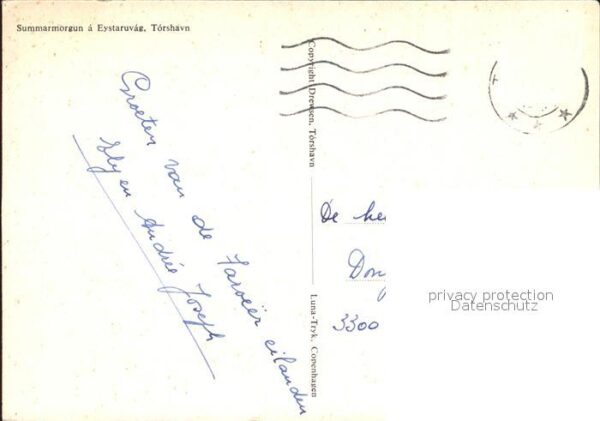 Summarmorgun á Eystaruvág, Tórshavn
Groeten van de Faroëer eilanden
Elyen André Joseph
Copyright Drewsen, Tórshavn
Luna-Tryk, Copenhagen
De
3300
privacy protection
Datenschutz